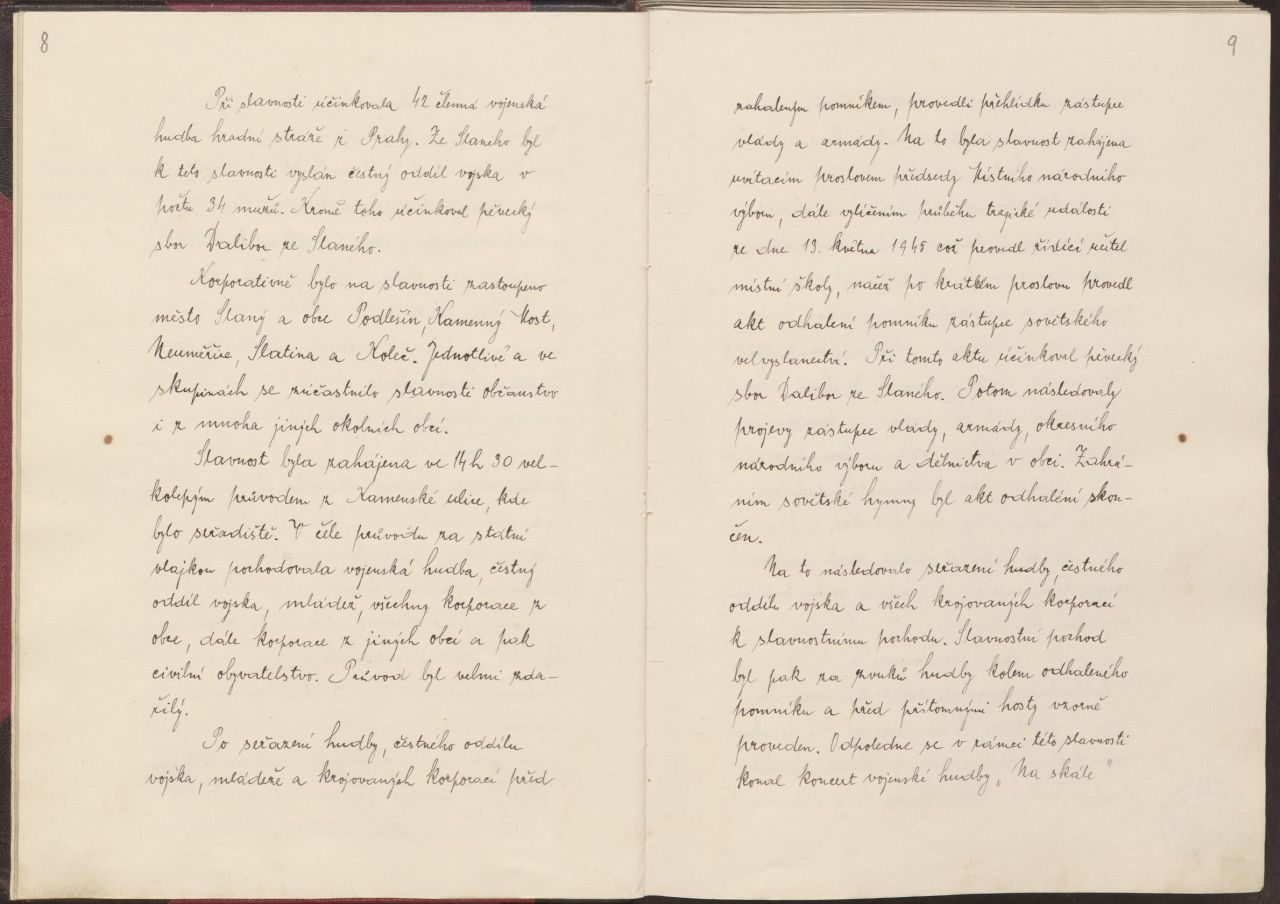 8
Při slavnosti účinkovala 42 členná vojenská
hudba hradní stráže z Prahy. Ze Slaného byl
k této slavnosti vyslán čestný oddíl vojska v
počtu 34 mužů. Kromě toho účinkoval pěvecký
sbor Dalibor ze Slaného.
Korporativně bylo na slavnosti zastoupeno
město Slaný a obce Podlešín, Kamenný Most,
Neuměřice, Slatina a Koleč. Jednotlivě a ve
skupinách se zúčastnilo slavnosti občanstvo
i z mnoha jiných okolních obcí.
Slavnost byla zahájena ve 14 h 30 vel-
kolepým průvodem z Kamenské ulice, kde
bylo seřadiště. V čele průvodu za státní
vlajkou pochodovala vojenská hudba, čestný
oddíl vojska, mládež, všechny korporace z
obce, dále korporace z jiných obcí a pak
civilní obyvatelstvo. Průvod byl velmi zda-
řilý.
Po seřazení hudby, čestného oddílu
vojska, mládeže a krojovaných korporací před
9
zahaleným pomníkem, provedli přehlídku zástupce
vlády a armády. Na to byla slavnost zahájena
uvítacím proslovem předsedy Místního národního
výboru, dále vylíčením průběhu tragické události
ze dne 13. května 1945 což provedl řídící učitel
místní školy, načež po krátkém proslovu provedl
akt odhalení pomníku zástupce sovětského
velvyslanectví. Při tomto aktu účinkoval pěvecký
sbor Dalibor ze Slaného. Potom následovaly
projevy zástupce vlády, armády, okresního
národního výboru a dělnictva v obci. Zahrá-
ním sovětské hymny byl akt odhalení skon-
čen.
Na to následovalo seřazení hudby, čestného
oddílu vojska a všech krojovaných korporací
k slavnostnímu pochodu. Slavnostní pochod
byl pak za zvuků hudby kolem odhaleného
pomníku a před přítomnými hosty vzorně
proveden. Odpoledne se v rámci této slavnosti
konal koncert vojenské hudby „Na skále"